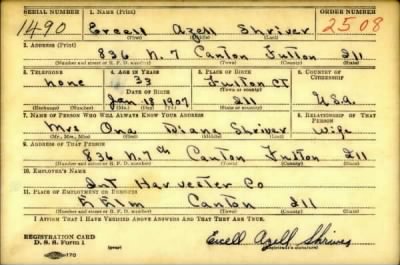 SERIAL NUMBER 1. NAME (Print) ORDER NUMBER
1490 Ercell Azell Shriver 2508
(First) (Middle) (Last)
2. ADDRESS (Print)
836 N. 7 Canton Fulton Ill
(Number and street or R. F. D. number) (Town) (County) (State)
3. TELEPHONE 4. AGE IN YEARS 5. PLACE OF BIRTH 6. COUNTRY OF CITIZENSHIP
none 33 Fulton Ct
DATE OF BIRTH (Town or county)
Jan 18 1907 Ill U.S.A.
(Exchange) (Number) (Mo.) (Day) (Yr.) (State or country)
7. NAME OF PERSON WHO WILL ALWAYS KNOW YOUR ADDRESS 8. RELATIONSHIP OF THAT PERSON
Mrs Ona Diana Shriver Wife
(Mr., Mrs., Miss) (First) (Middle) (Last)
9. ADDRESS OF THAT PERSON
836 N. 7 Canton Fulton Ill
(Number and street or R. F. D. number) (Town) (County) (State)
10. EMPLOYER'S NAME
Int Harvester Co
11. PLACE OF EMPLOYMENT OR BUSINESS
E Elm Canton Ill
(Number and street or R. F. D. number) (Town) (County) (State)
I AFFIRM THAT I HAVE VERIFIED ABOVE ANSWERS AND THAT THEY ARE TRUE.
REGISTRATION CARD
D. S. S. Form 1 Ercell Azell Shriver
(Registrant's signature)